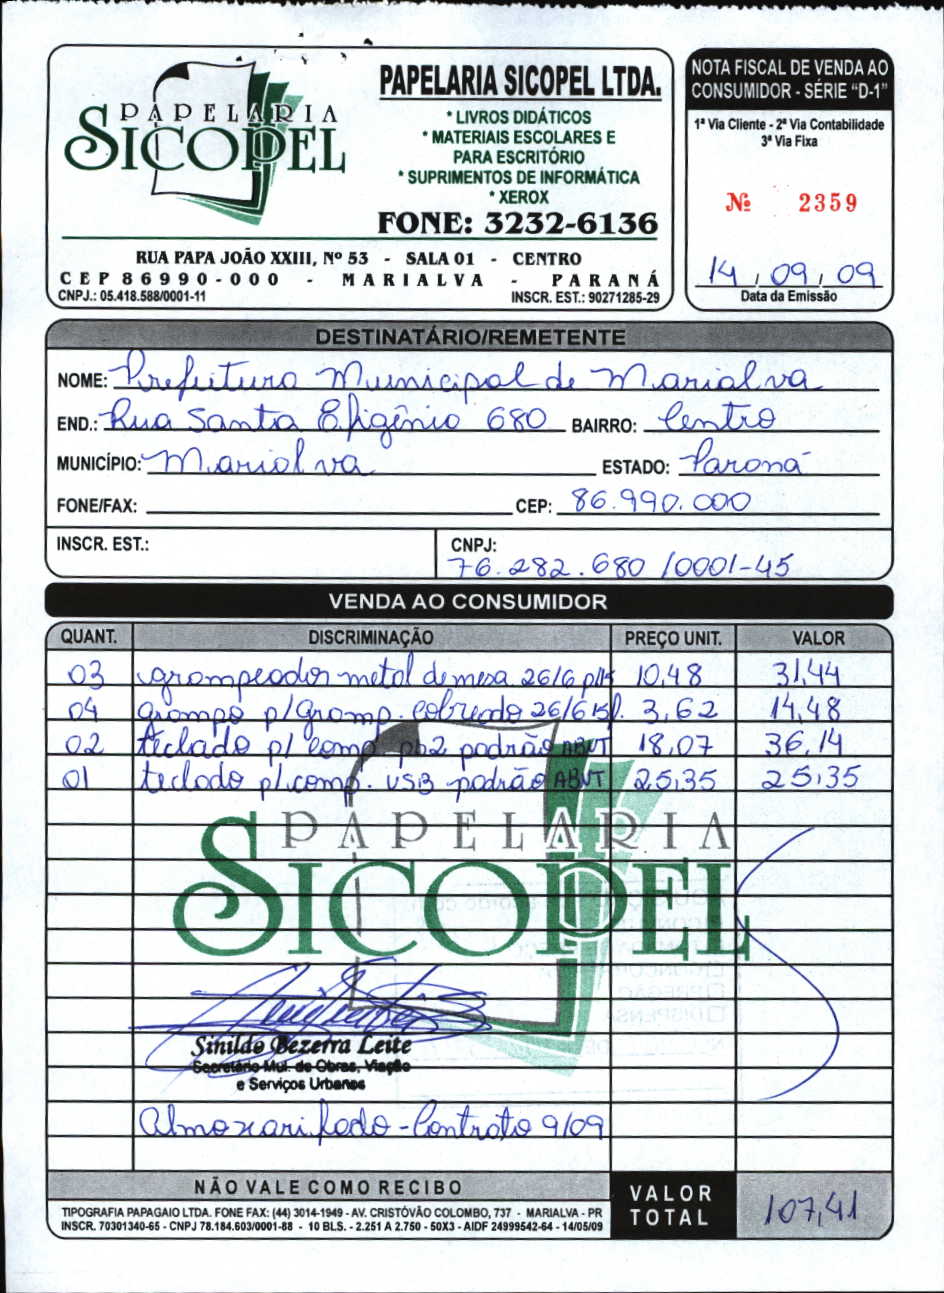 PAPELARIA
SICOPEL
PAPELARIA SICOPEL LTDA.
* LIVROS DIDÁTICOS
* MATERIAIS ESCOLARES E
PARA ESCRITÓRIO
* SUPRIMENTOS DE INFORMÁTICA
* XEROX
FONE: 3232-6136
RUA PAPA JOÃO XXIII, Nº 53 - SALA 01 - CENTRO
CEP 86990-000 - MARIALVA - PARANÁ
CNPJ.: 05.418.588/0001-11 INSCR. EST.: 90271285-29
NOTA FISCAL DE VENDA AO
CONSUMIDOR - SÉRIE "D-1"
1ª Via Cliente - 2ª Via Contabilidade
3ª Via Fixa
Nº 2359
14, 09, 09
Data da Emissão
DESTINATÁRIO/REMETENTE
NOME: Prefeitura Municipal de Marialva
END.: Rua Santa Efigênia 680 BAIRRO: Centro
MUNICÍPIO: Marialva ESTADO: Paraná
FONE/FAX: CEP: 86.990.000
INSCR. EST.: CNPJ:
76.282.680/0001-45
VENDA AO CONSUMIDOR
QUANT. DISCRIMINAÇÃO PREÇO UNIT. VALOR
03 grampeador metal de mesa 26/6 10,48 31,44
04 grampo p/ gramp. cobreado 26/6 3,62 14,48
02 teclado p/ comp. ps2 padrão ABNT 18,07 36,14
01 teclado p/ comp. USB padrão ABNT 25,35 25,35
PAPELARIA
SICOPEL
Sinildo Bezerra Leite
Secretário Mul. de Obras, Viação
e Serviços Urbanos
Almoxarifado - Contrato 9/09
NÃO VALE COMO RECIBO
TIPOGRAFIA PAPAGAIO LTDA. FONE FAX: (44) 3014-1949 - AV. CRISTÓVÃO COLOMBO, 737 - MARIALVA - PR
INSCR. 70301340-65 - CNPJ 78.184.603/0001-88 - 10 BLS. - 2.251 A 2.750 - 50X3 - AIDF 24999542-64 - 14/05/09
VALOR
TOTAL
107,41